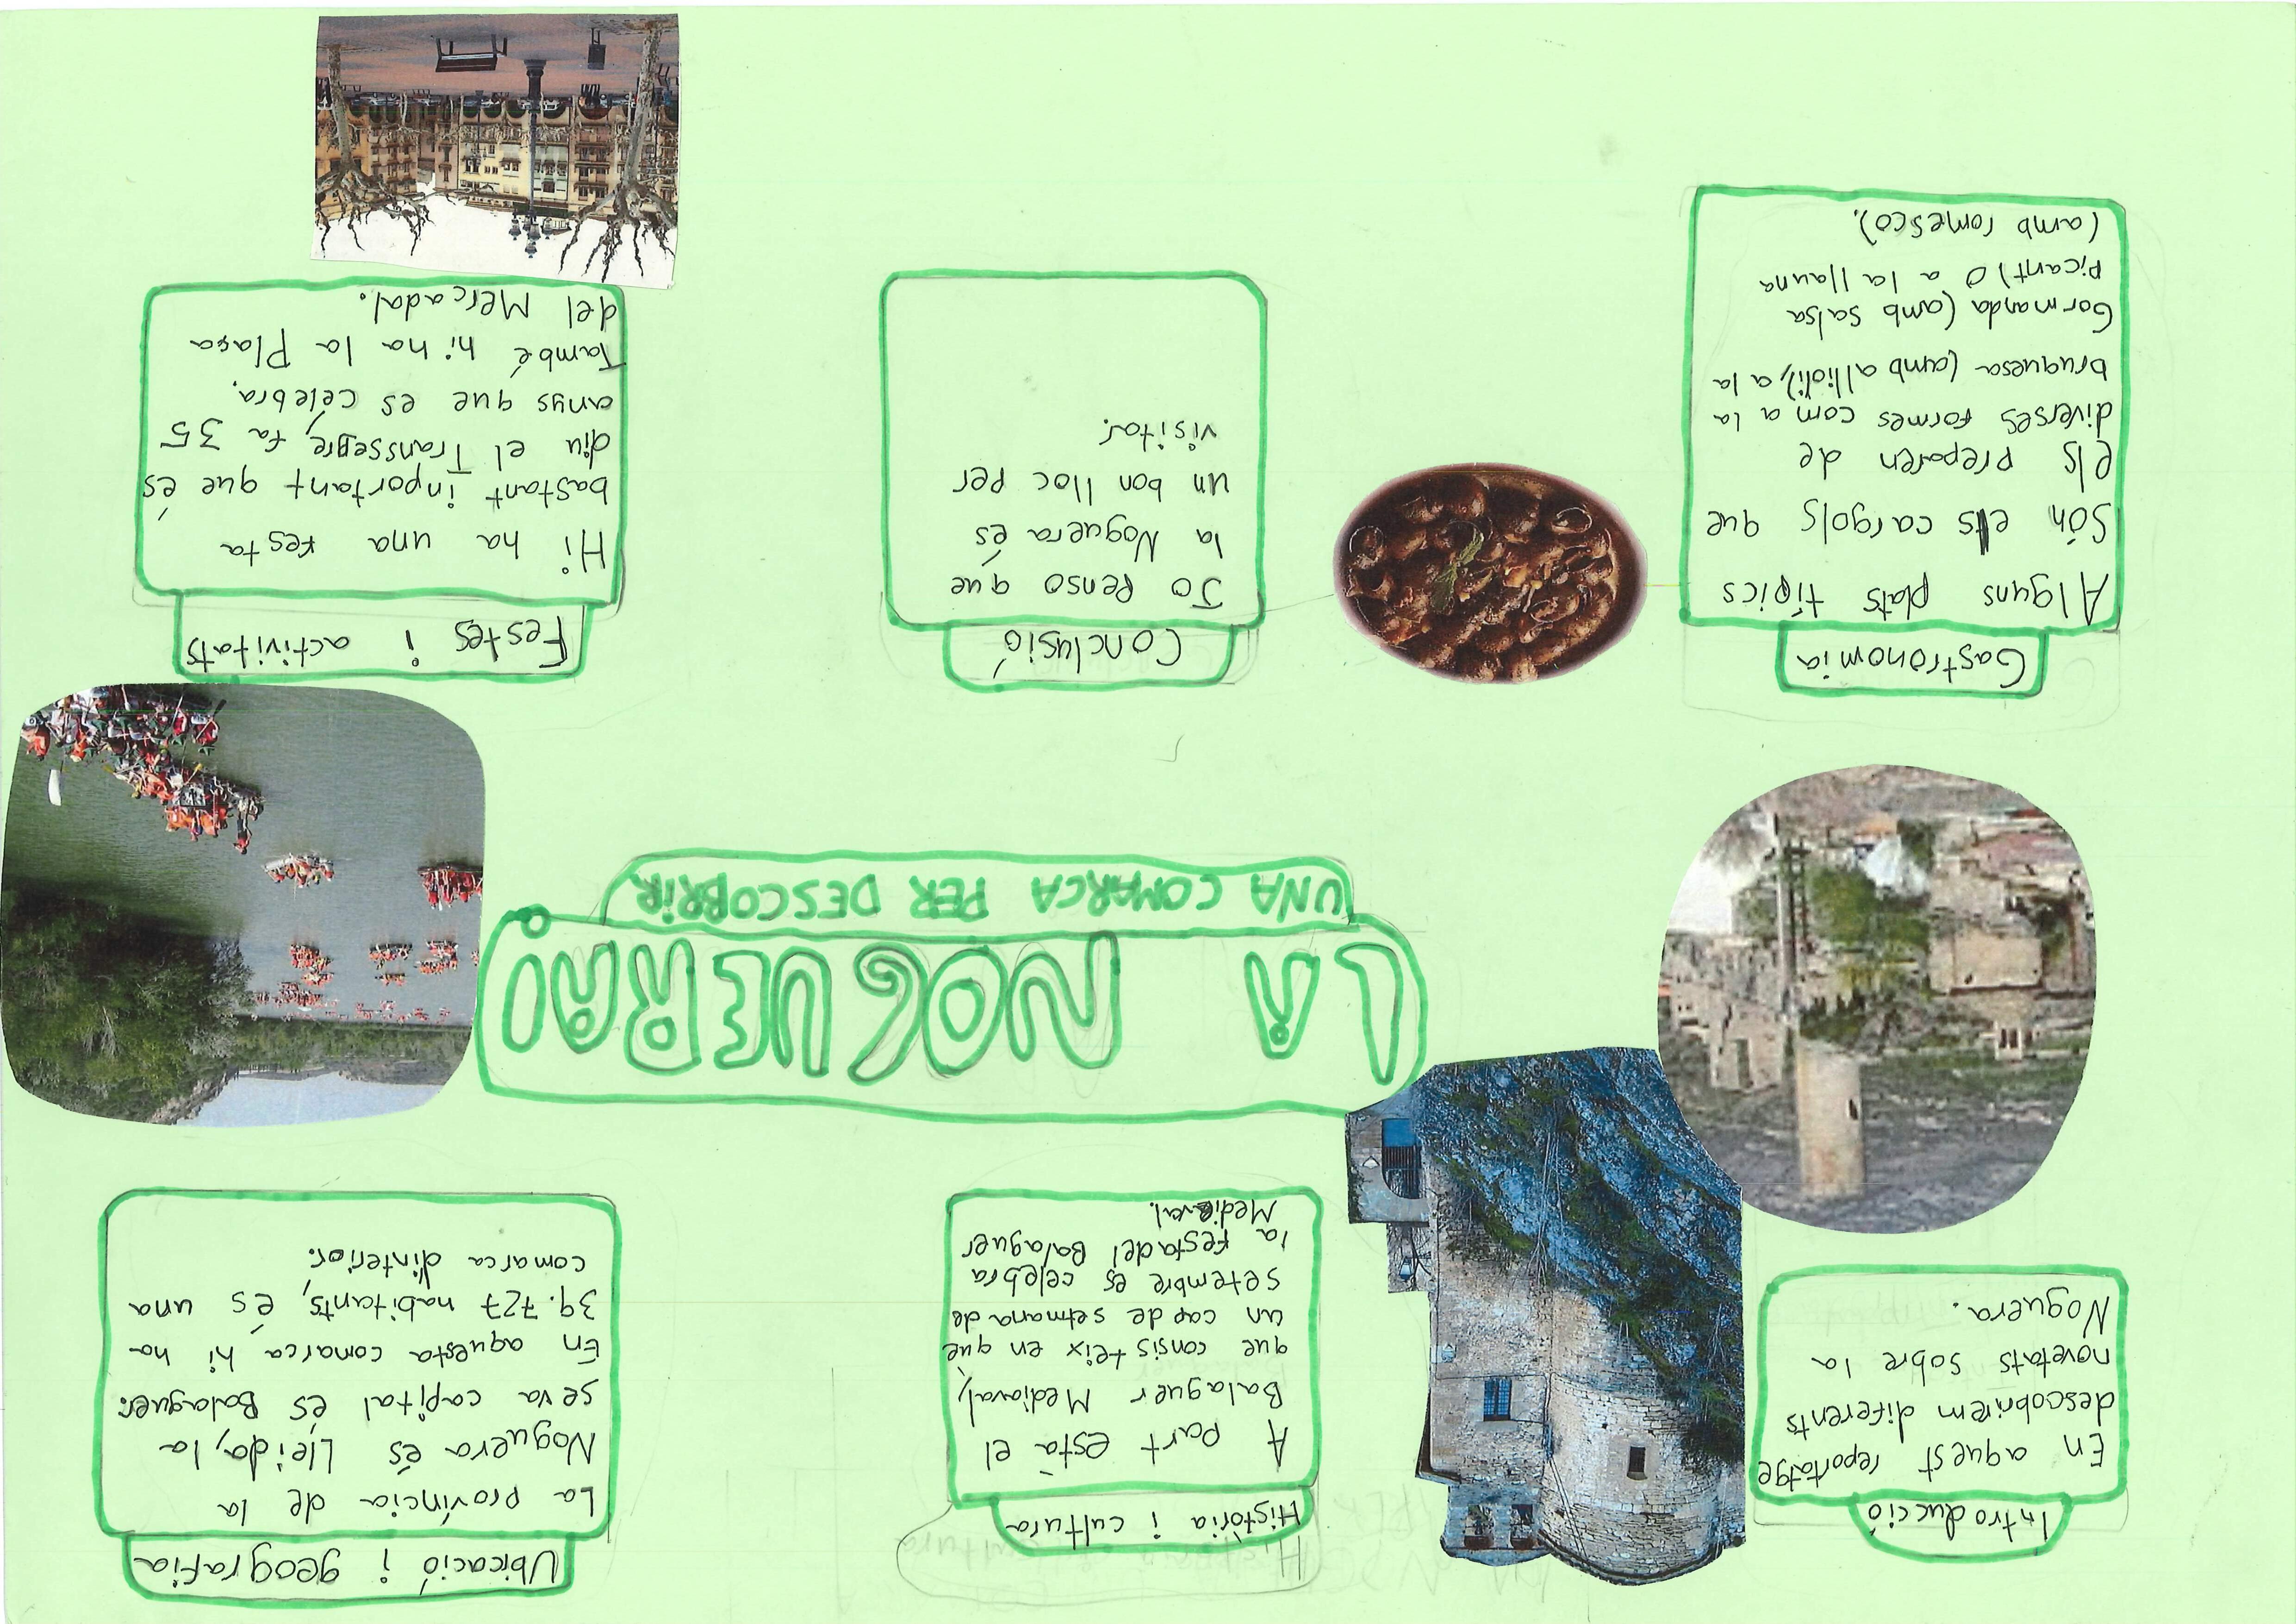 Introducció
En aquest reportatge
descobrirem diferents
novetats sobre la
Noguera.
Història i cultura
A part està el
Balaguer Medieval,
que consisteix en que
un cap de setmana de
setembre es celebra
la festa del Balaguer
Medieval.
Ubicació i geografia
La província de la
Noguera és Lleida, la
seva capital és Balaguer.
En aquesta comarca hi ha
39.727 habitants, és una
comarca d'interior.
LA NOGUERA!
UNA COMARCA PER DESCOBRIR
Gastronomia
Alguns plats típics
Són els cargols que
els preparen de
diverses formes com a la
bruquesa (amb allioli), a la
Gormanda (amb salsa
picant) O a la llauna
(amb romesco).
Conclusió
Jo Penso que
la Noguera és
un bon lloc per
visitar.
Festes i activitats
Hi ha una festa
bastant inportant que és
diu el Transsegre, fa 35
anys que es celebra.
També hi ha la Plaça
del Mercadal.